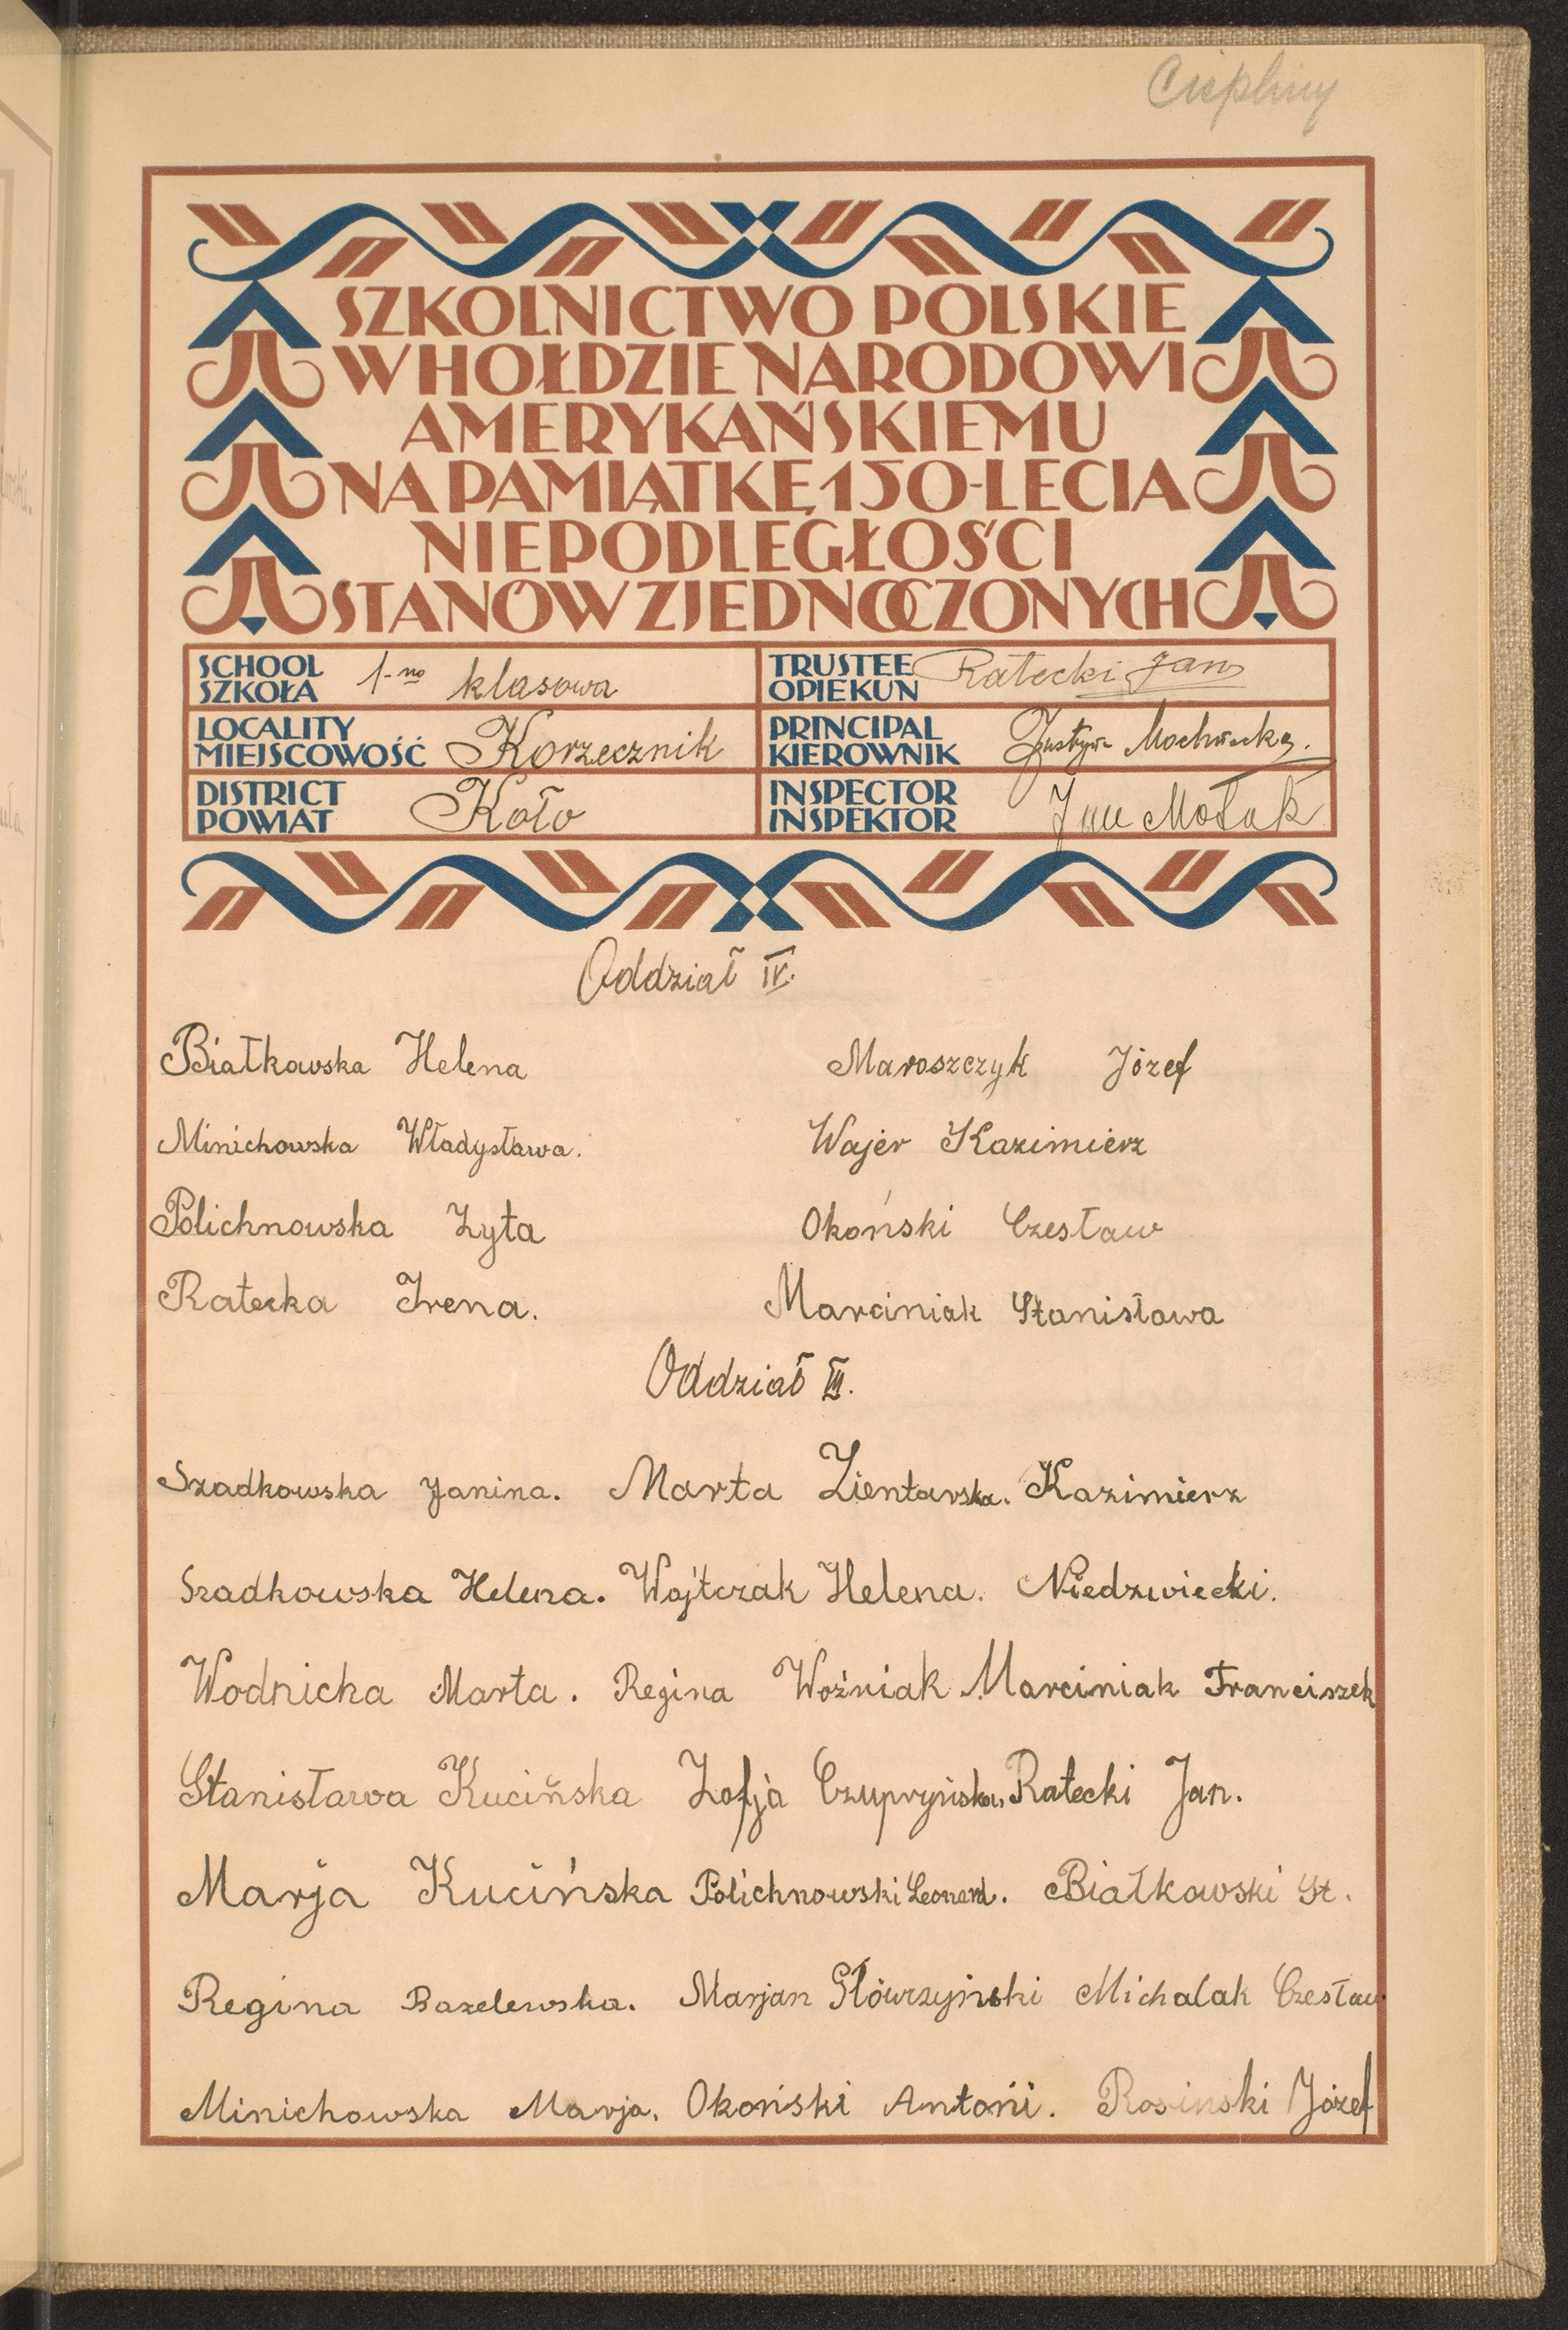 Ciepliny
SZKOLNICTWO POLSKIE
W HOŁDZIE NARODOWI
AMERYKAŃSKIEMU
NA PAMIĄTKĘ 150-LECIA
NIEPODLEGŁOŚCI
STANÓW ZJEDNOCZONYCH
SCHOOL
SZKOŁA 1-no klasowa
TRUSTEE
OPIEKUN Ratecki Jan
LOCALITY
MIEJSCOWOŚĆ Korzecznik
PRINCIPAL
KIEROWNIK
DISTRICT
POWIAT Koło
INSPECTOR
INSPEKTOR Jan
Oddział IV.
Białkowska Helena Maroszczyk Józef
Minichowska Władysława. Wajer Kazimierz
Polichnowska Zyta Okoński Czesław
Ratecka Irena. Marciniak Stanisława
Oddział III.
Szadkowska Janina. Marta Zientarska. Kazimierz
Szadkowska Helena. Wojtczak Helena. Niedzwiecki.
Wodnicka Marta. Regina Woźniak Marciniak Franciszek
Stanisława Kucińska Zofja Czupryńska, Ratecki Jan.
Marja Kucińska Polichnowski Leonard. Białkowski St.
Regina Bazelewska. Marjan Główrzyński Michalak Czesław
Minichowska Marja. Okoński Antoni. Rosinski Józef